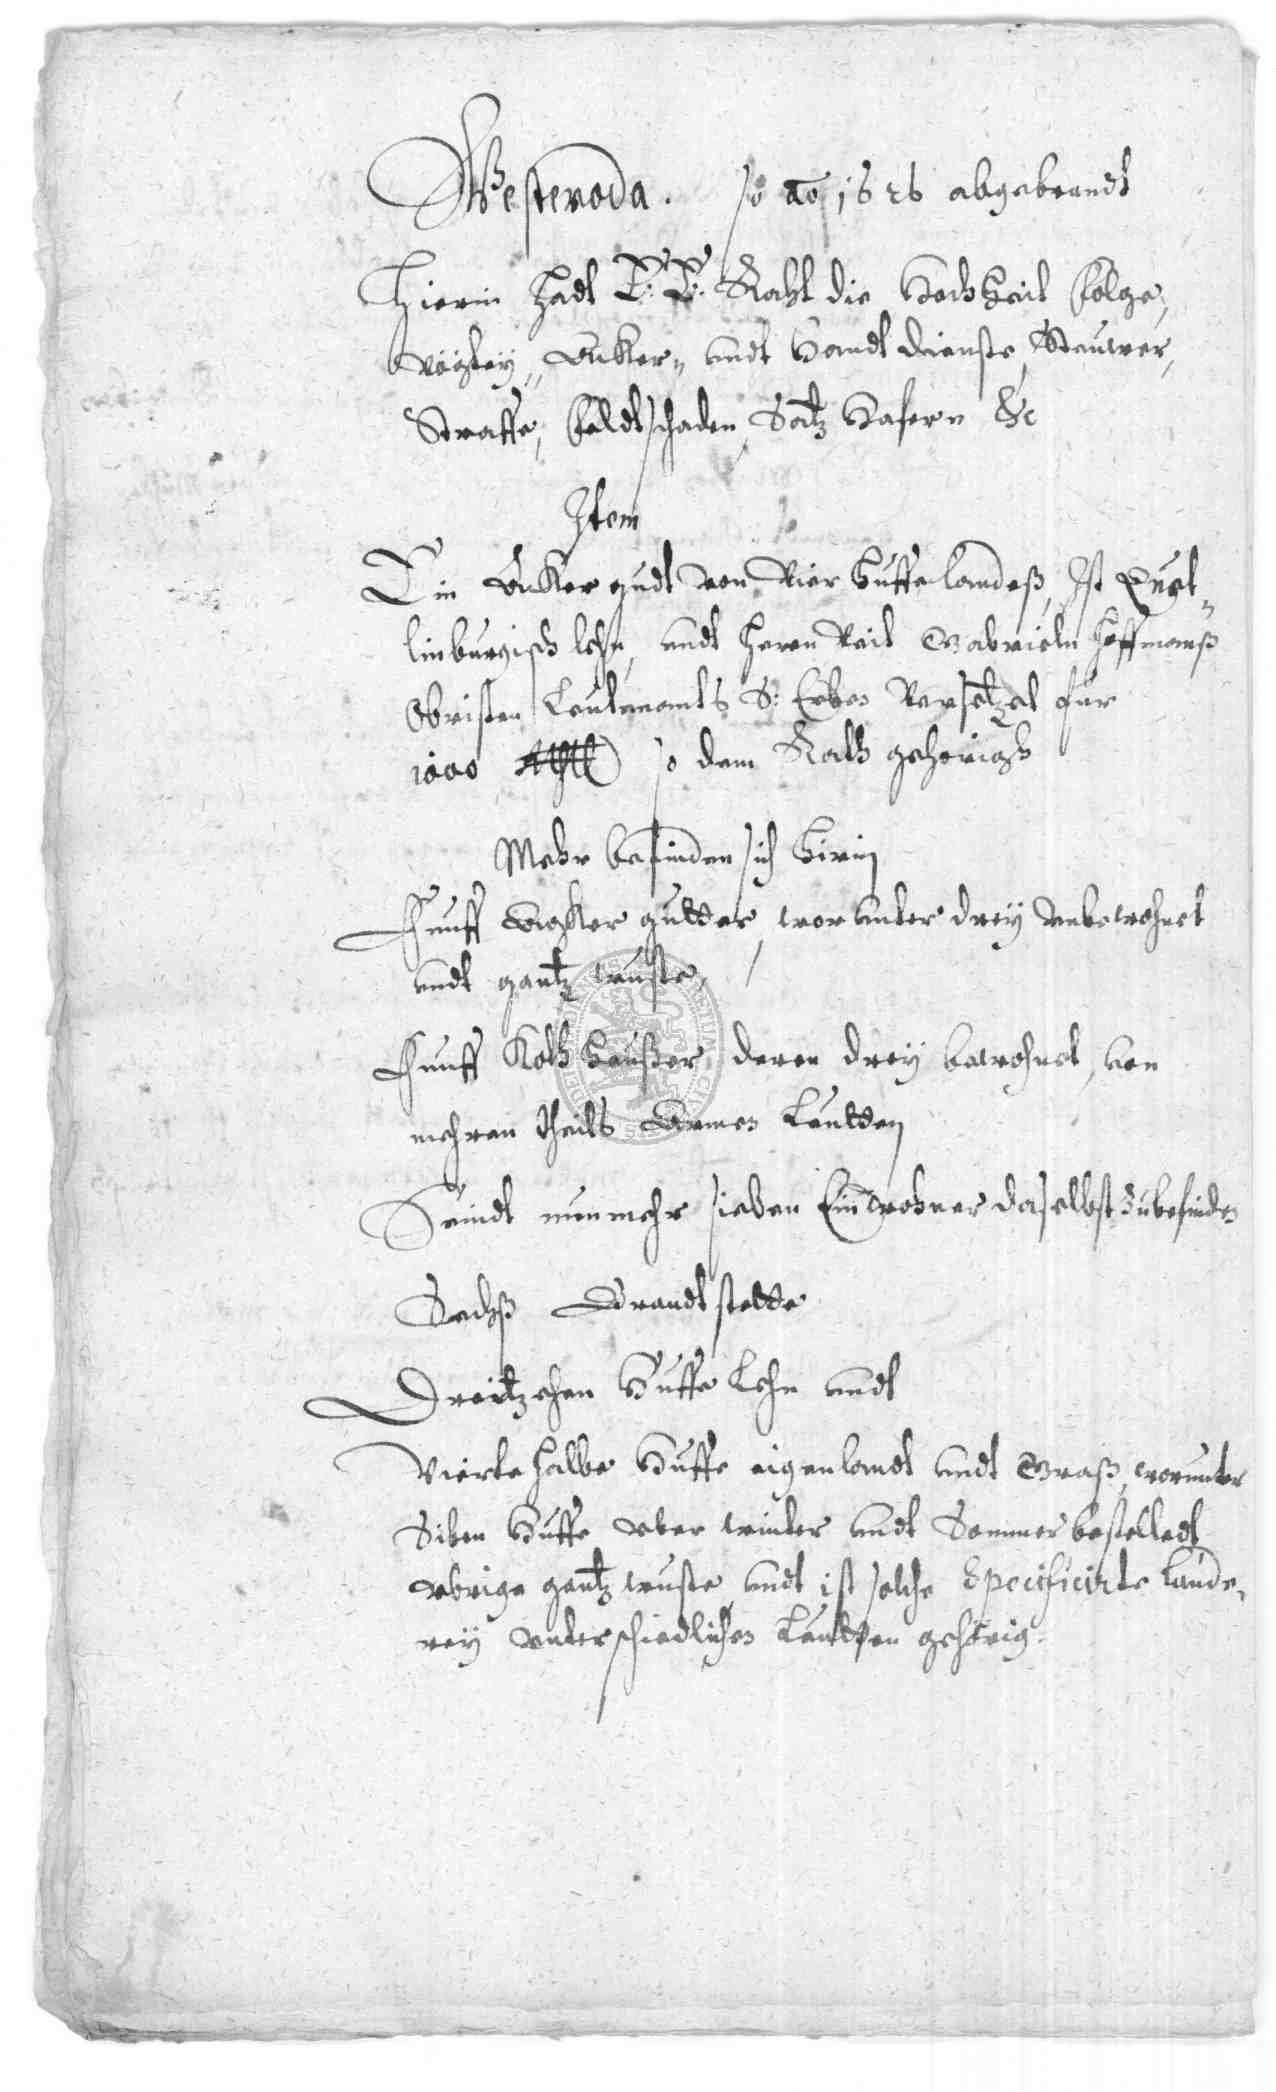 Westeroda. so ao 1626 abgebrandt
Hierin hadt E: E: Raht die Hochheit folge,
voigtey, Acker= undt Handt dienste, Steuwer,
Straffe, feldtschaden, Satz Hafern &c
Item
Ein Acker gudt von vier Huffe landeß, Ist Quet=
linburgisch lehn, undt Herrn Veit Gabrieln Hoffmanß
Obristen Leutenamts S: Erben Versetzet für
1000 so dem Rath gehörigh
Mehr befinden sich Hirin
Funff Acker gutter, worunter drey unbewohnet
undt gantz wuste,
Funff Koth Heußer, deren drey bewohnet, von
mehren theils Armen Leutten
Seindt nunmehr sieben Einwohner daselbst Zubefinden
Sechß Brandtstette
Dreitzehen Huffe Lehn undt
Vierte halbe Huffe eigenlandt undt Graß, worunter
Siben Huffe uber winter undt Sommer bestelledt
ubrige gantz wuste undt ist solche Specificirte Lände,
rey unterschiedlichen Leutten gehörig.